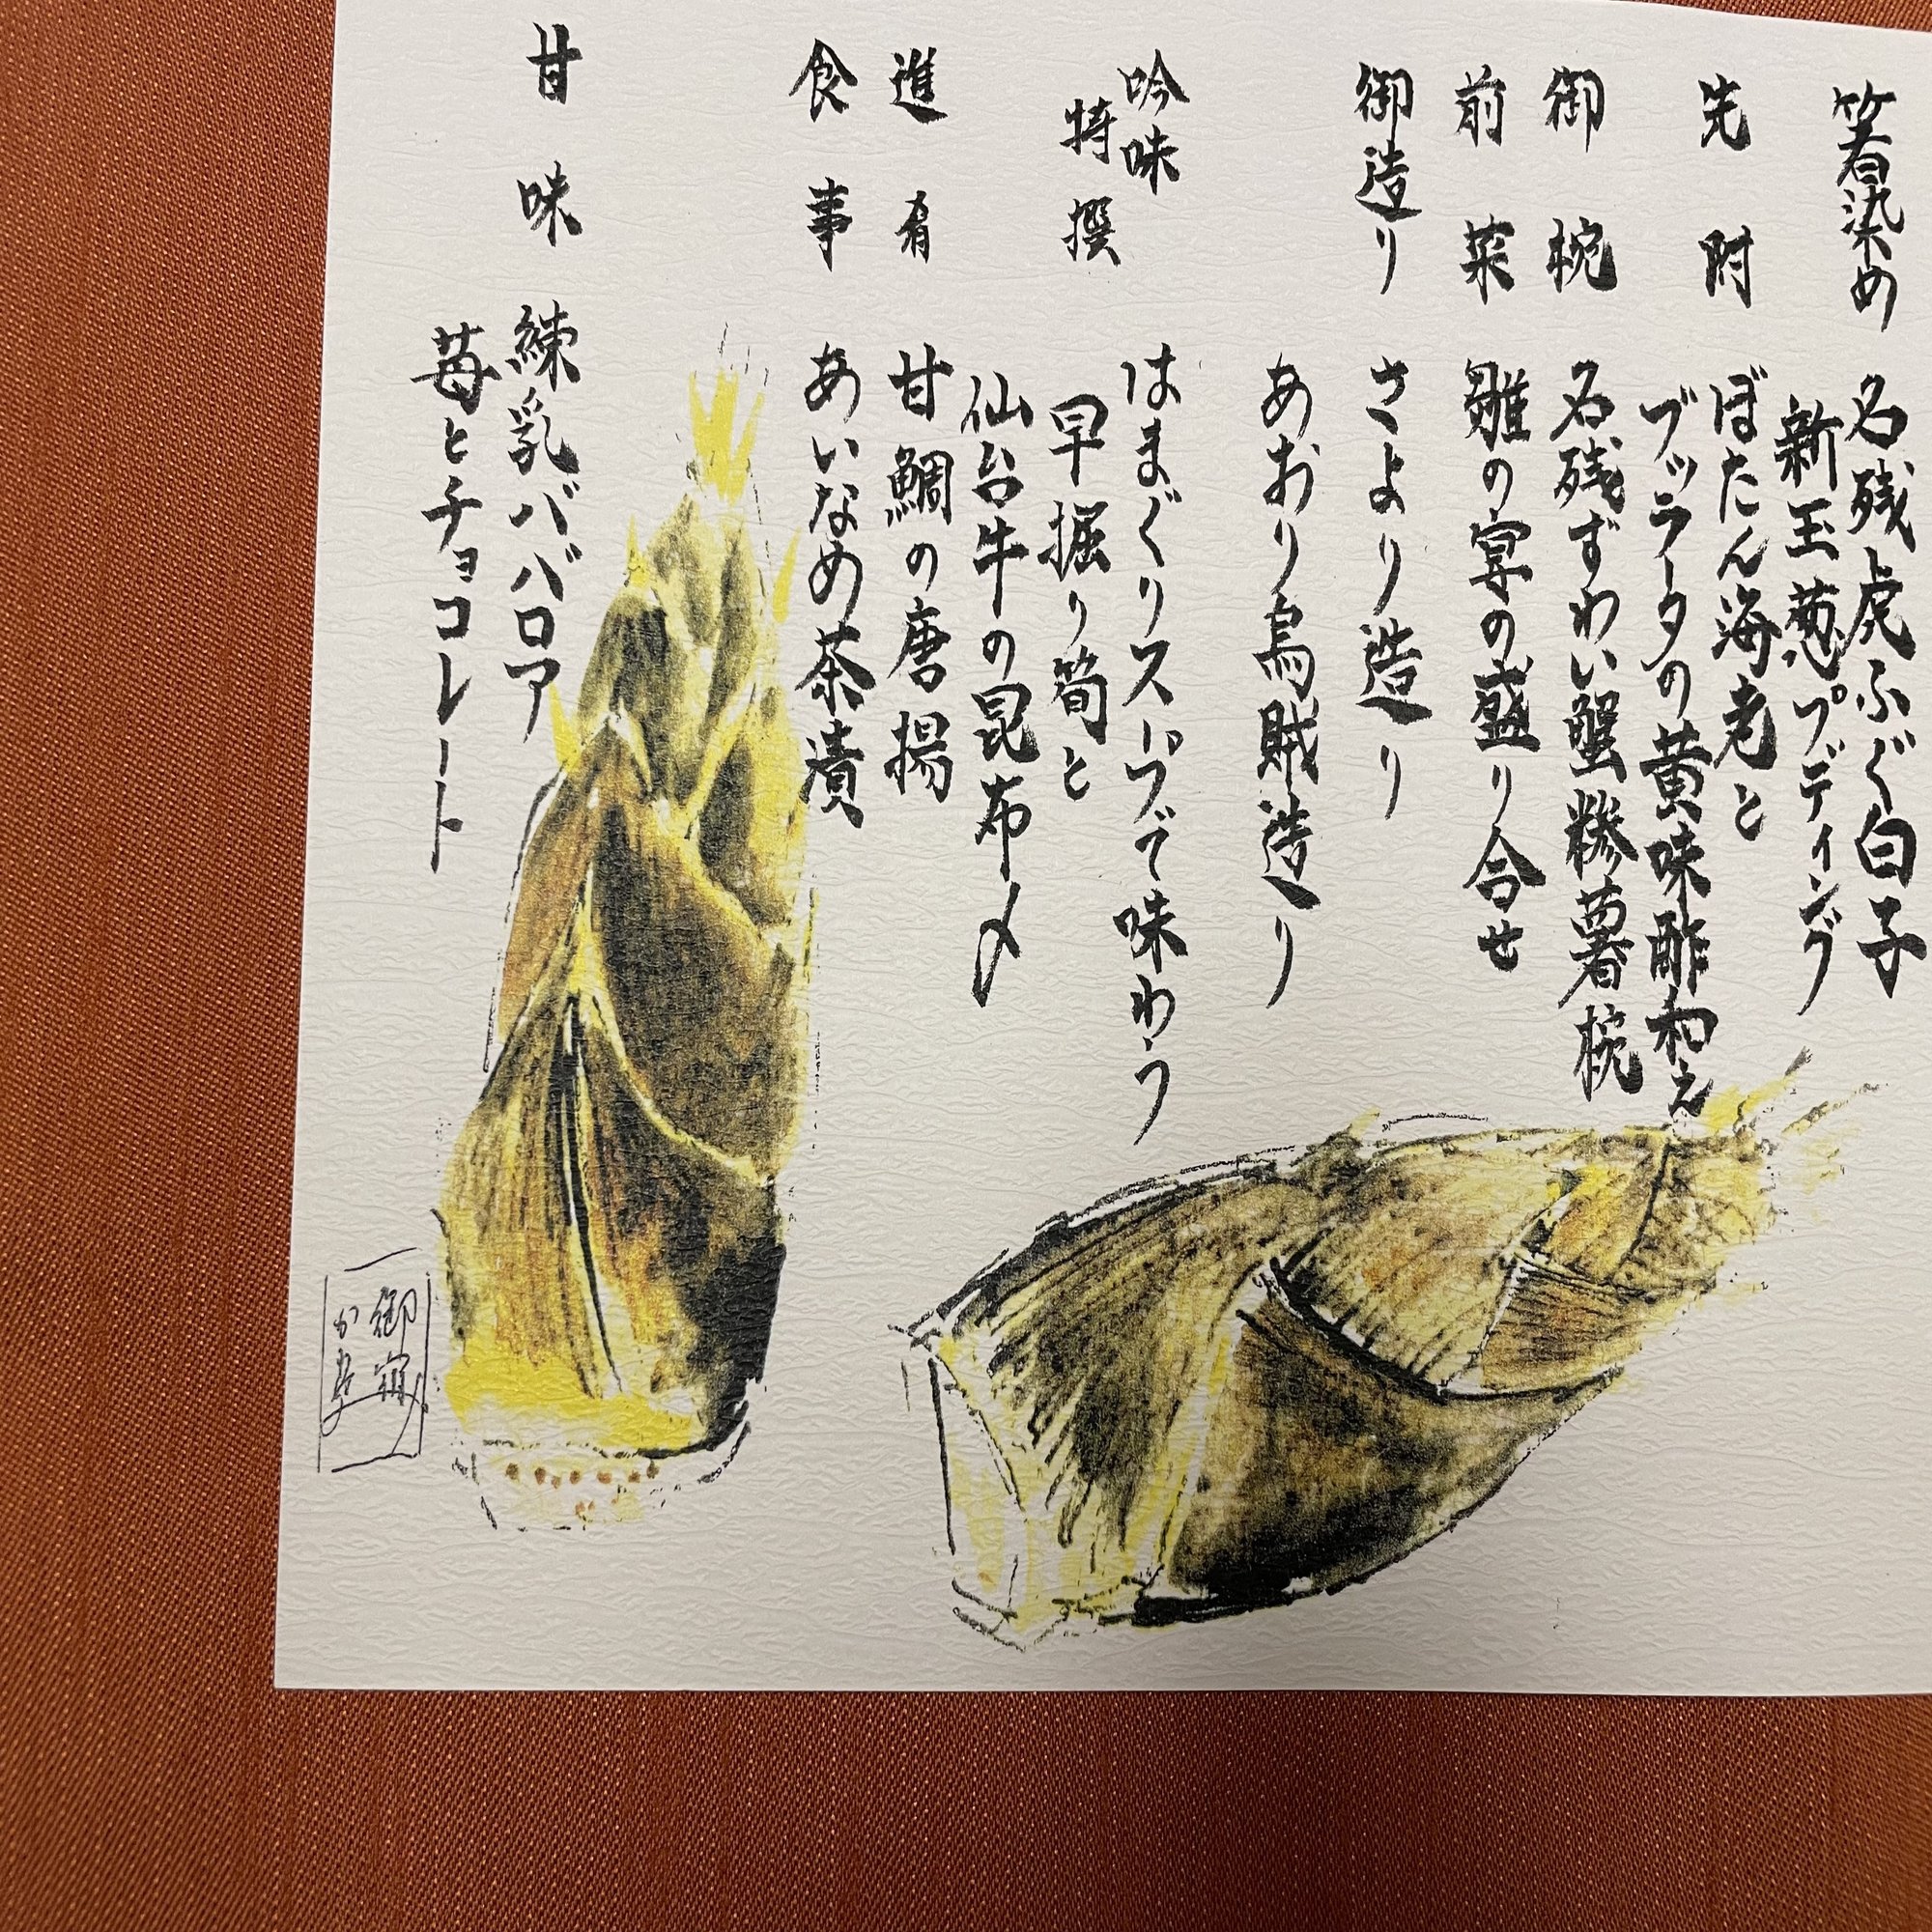 箸染め 名残虎ふぐ白子
新玉葱プディング
先附 ぼたん海老と
ブッラータの黄味酢和え
御椀 名残ずわい蟹糝薯椀
前菜 雛の宴の盛り合せ
御造り さより造り
あおり烏賊造り
吟味 はまぐりスープで味わう
特撰 早掘り筍と
仙台牛の昆布〆
進肴 甘鯛の唐揚
食事 あいなめ茶漬
甘味 練乳ババロア
苺とチョコレート
御宿